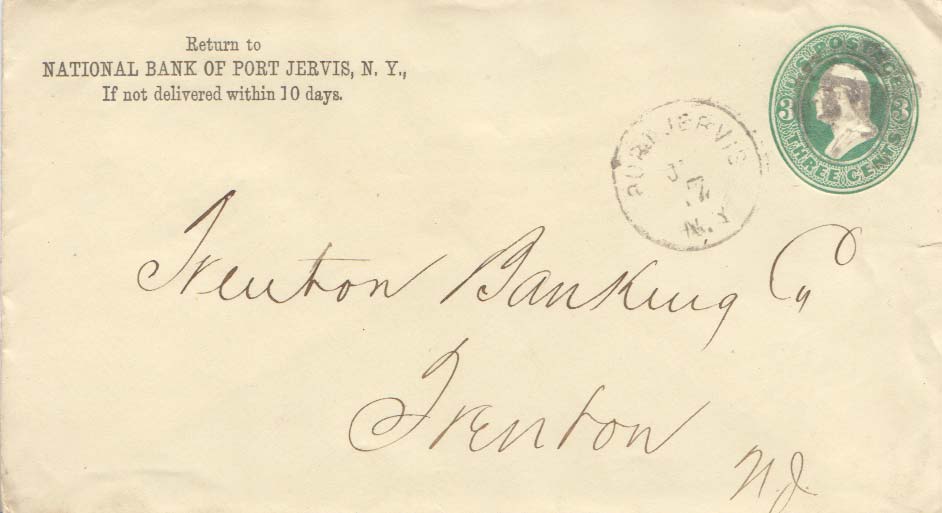 Return to
NATIONAL BANK OF PORT JERVIS, N. Y.,
If not delivered within 10 days.
U.S. POSTAGE
3 3
THREE CENTS
PORT JERVIS
N.Y
Trenton Banking Co
Trenton
N.J.